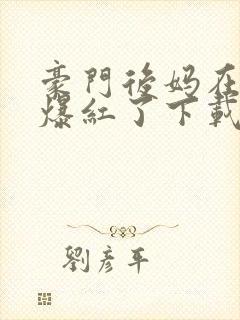 豪門後妈在
爆紅了下載
劉彥平